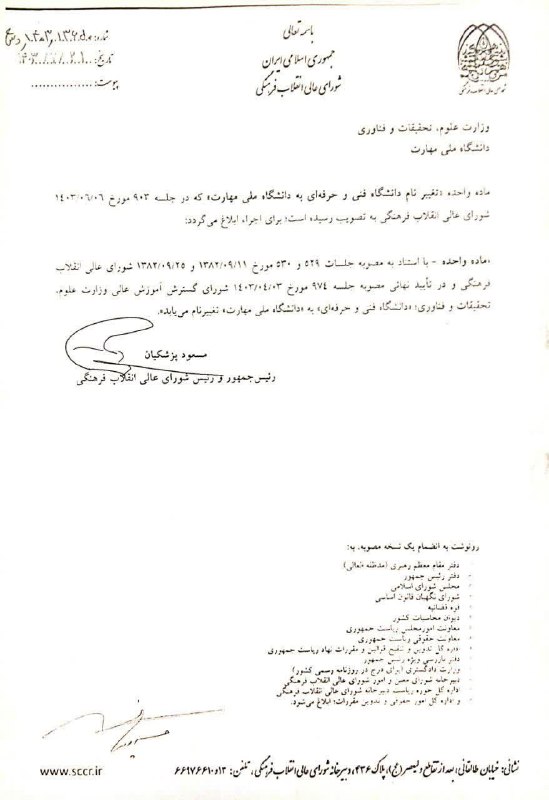 باسمه تعالی
جمهوری اسلامی ایران
شورای عالی انقلاب فرهنگی
شماره:
تاریخ:
پیوست: ................
شورای عالی انقلاب فرهنگی
وزارت علوم، تحقیقات و فناوری
دانشگاه ملی مهارت
ماده واحده «تغییر نام دانشگاه فنی و حرفه‌ای به دانشگاه ملی مهارت» که در جلسه ۹۰۳ مورخ ۱۴۰۳/۰۶/۰۶
شورای عالی انقلاب فرهنگی به تصویب رسیده است؛ برای اجراء ابلاغ می‌گردد:
«ماده واحده - با استناد به مصوبه جلسات ۵۲۹ و ۵۳۰ مورخ ۱۳۸۲/۰۹/۱۱ و ۱۳۸۲/۰۹/۲۵ شورای عالی انقلاب
فرهنگی و در تأیید نهائی مصوبه جلسه ۹۷۴ مورخ ۱۴۰۳/۰۴/۰۳ شورای گسترش آموزش عالی وزارت علوم،
تحقیقات و فناوری؛ «دانشگاه فنی و حرفه‌ای» به «دانشگاه ملی مهارت» تغییرنام می‌یابد».
مسعود پزشکیان
رئیس‌جمهور و رئیس شورای عالی انقلاب فرهنگی
رونوشت به انضمام یک نسخه مصوبه، به:
دفتر مقام معظم رهبری (مدظله العالی)
- دفتر رئیس جمهور
- مجلس شورای اسلامی
- شورای نگهبان قانون اساسی
- قوه قضائیه
- دیوان محاسبات کشور
- معاونت امورمجلس ریاست جمهوری
- معاونت حقوقی ریاست جمهوری
- اداره کل تدوین و تنقیح قوانین و مقررات نهاد ریاست جمهوری
- دفتر بازرسی ویژه رئیس جمهور
- وزارت دادگستری (برای درج در روزنامه رسمی کشور)
- دبیرخانه شورای معین و امور شورای عالی انقلاب فرهنگی
- اداره کل حوزه ریاست دبیرخانه شورای عالی انقلاب فرهنگی
- و اداره کل امور حقوقی و تدوین مقررات؛ ابلاغ می‌شود.
نشانی: خیابان طالقانی، بعد از تقاطع ولیعصر (عج)، پلاک ۴۳۶، دبیرخانه شورای عالی انقلاب فرهنگی، تلفن: ۱۳و۶۶۹۷۶۶۱۰
www.sccr.ir